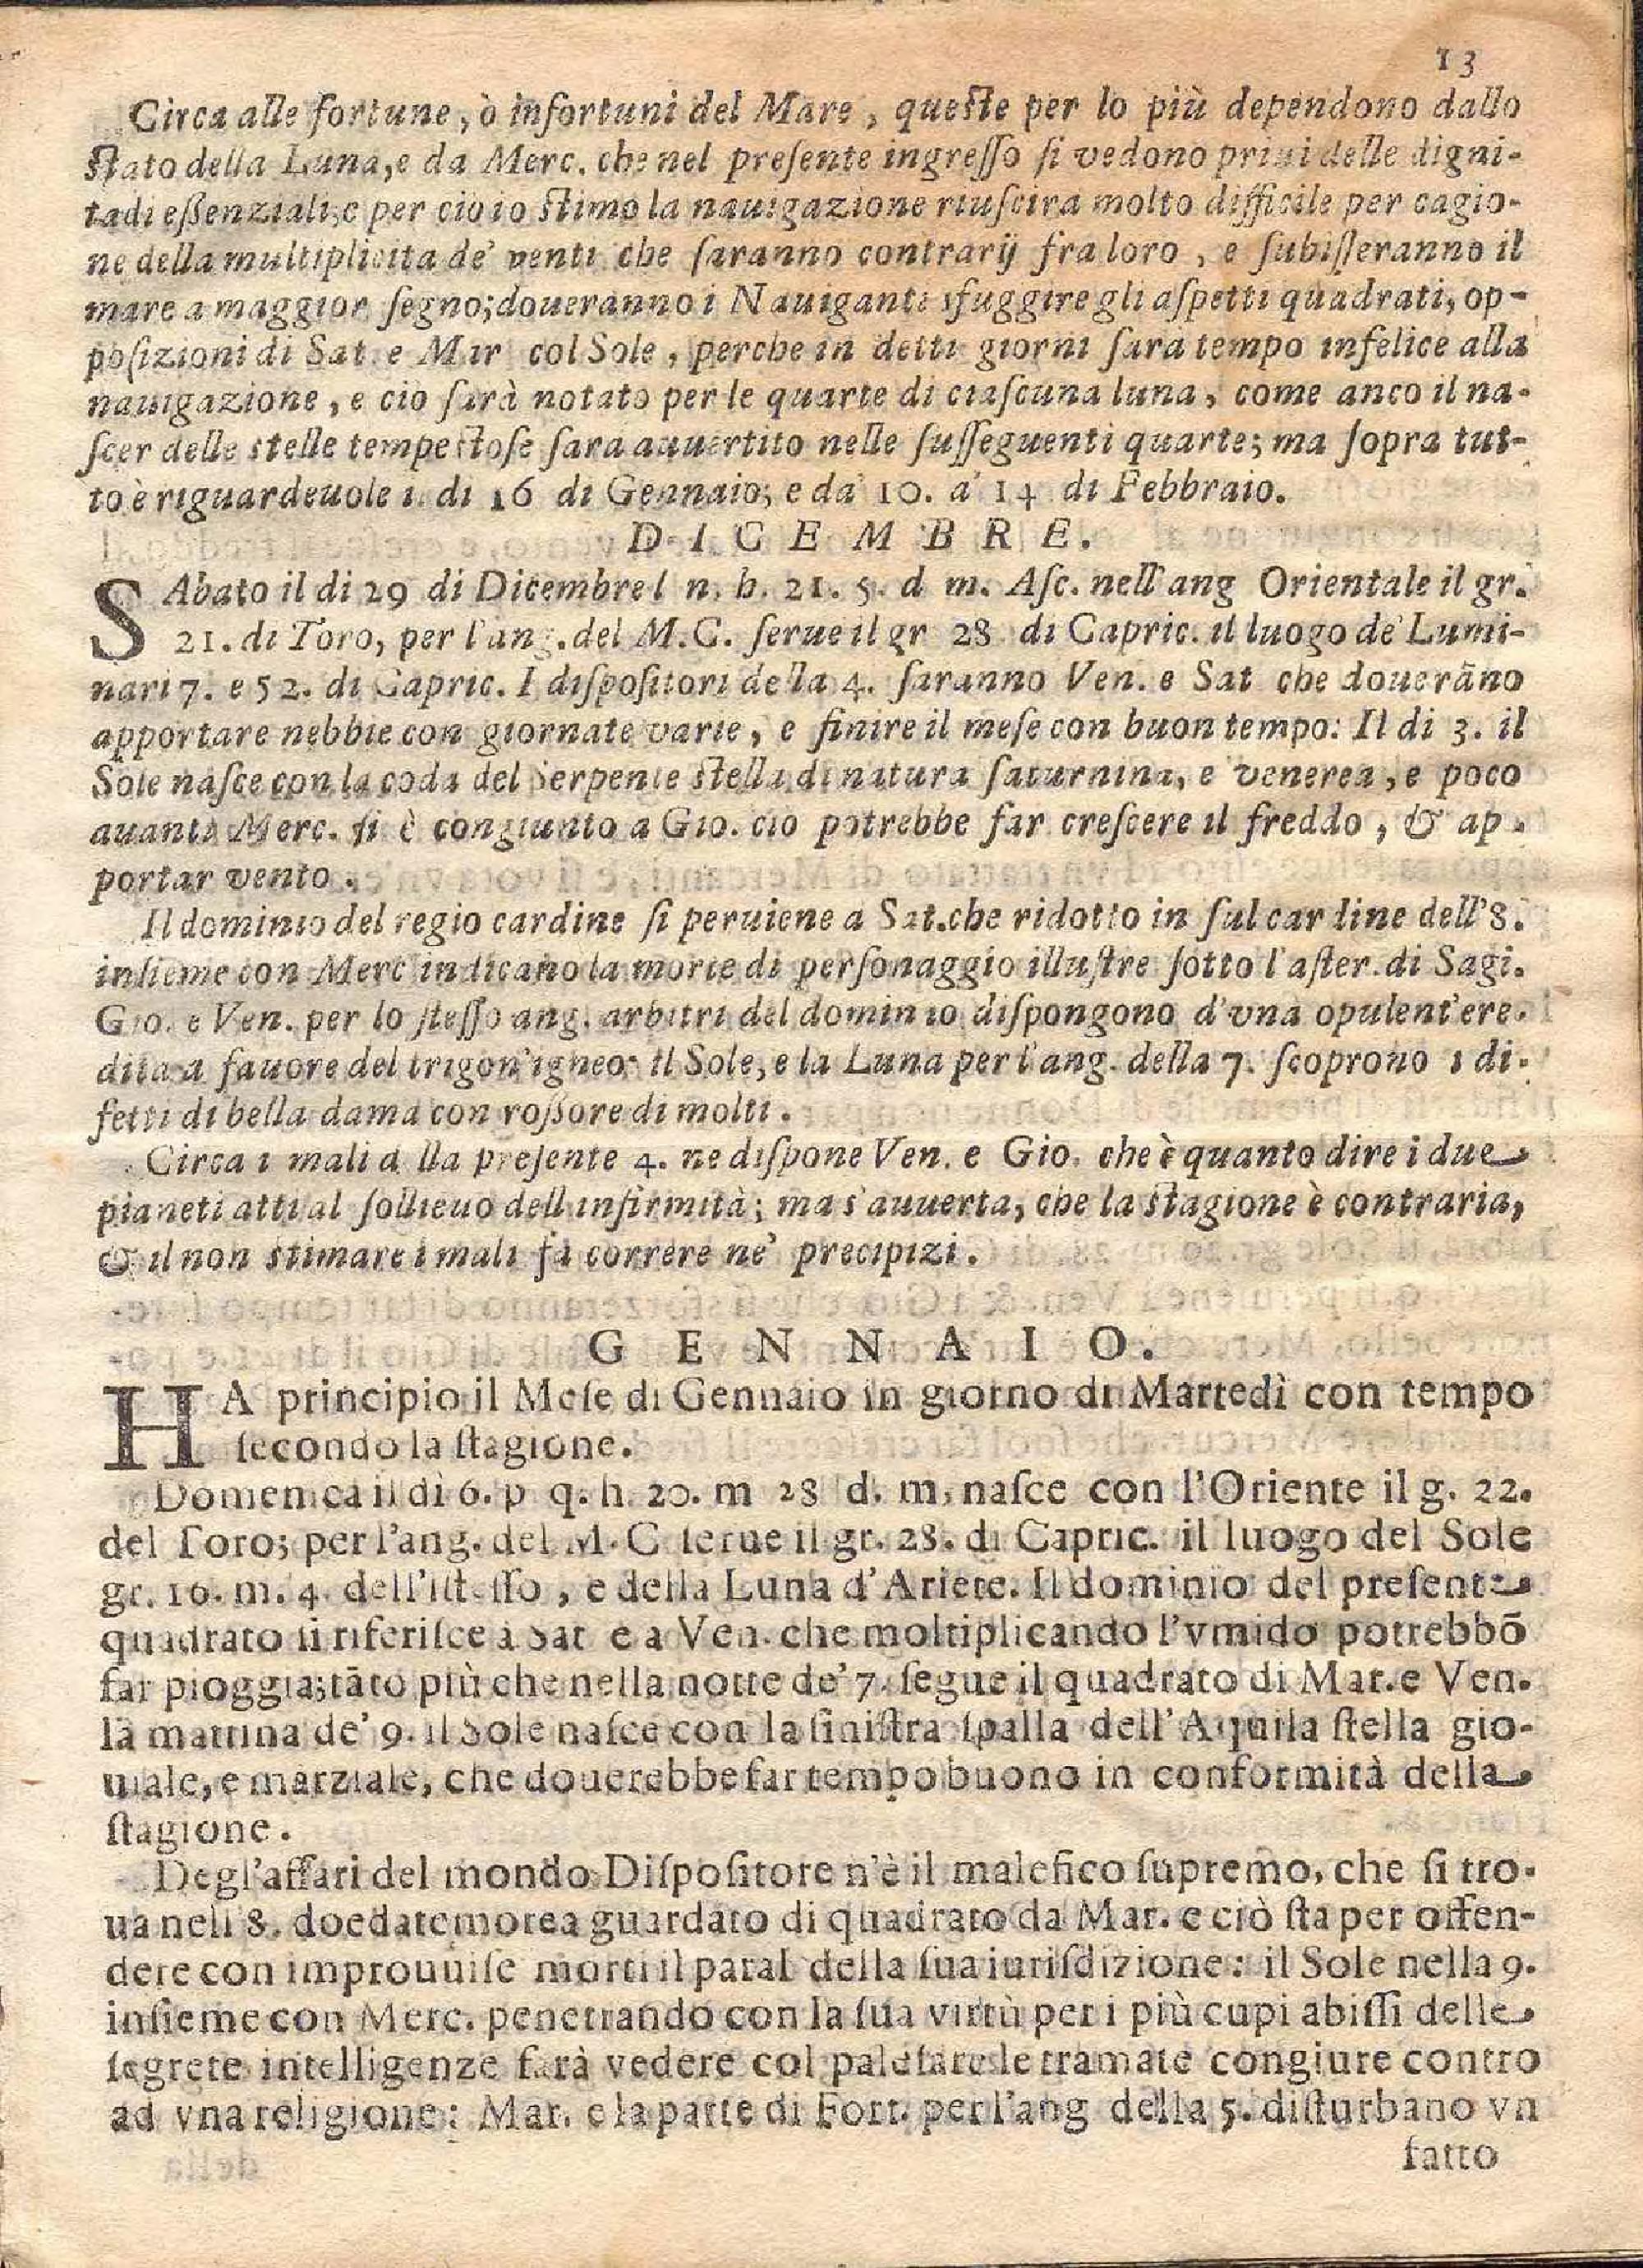 13
Circa alle fortune, ò infortuni del Mare, queste per lo più dependono dallo
stato della Luna, e da Merc. che nel preſente ingreſſo ſi vedono priui delle digni-
tadi eßenziali; e per cio io stimo la nauigazione riuſcira molto difficile per cagio-
ne della multiplicita de' venti che ſaranno contrarij fra loro, e ſubiſſeranno il
mare a maggior ſegno; doueranno i Nauiganti sfuggire gli aſpetti quadrati, op-
poſizioni di Sat. e Mar col Sole, perche in detti giorni ſara tempo infelice alla
nauigazione, e cio ſarà notato per le quarte di ciaſcuna luna, come anco il na-
ſcer delle stelle tempestoſe ſara auuertito nelle ſuſſeguenti quarte; ma ſopra tut-
to è riguardeuole i. di 16 di Gennaio; e da 10. a' 14 di Febbraio.
DICEMBRE.
SAbato il di 29 di Dicembre l n. h. 21. 5. d m. Aſc. nell'ang Orientale il gr.
21. di Toro, per l'ang. del M.C. ſerue il gr 28 di Capric. il luogo de' Lumi-
nari 7. e 52. di Capric. I diſpoſitori della 4. ſaranno Ven. e Sat che douerãno
apportare nebbie con giornate varie, e finire il meſe con buon tempo: Il di 3. il
Sole naſce con la coda del Serpente stella di natura ſaturnina, e venerea, e poco
auanti Merc. ſi è congiunto a Gio. cio potrebbe far creſcere il freddo, & ap-
portar vento.
Il dominio del regio cardine ſi peruiene a Sat. che ridotto in ſul cardine dell'8.
inſieme con Merc indicano la morte di perſonaggio illuſtre ſotto l'aſter. di Sagi.
Gio. e Ven. per lo ſteſſo ang. arbitri del dominio diſpongono d'vna opulent'ere-
dita a fauore del trigon'igneo: il Sole, e la Luna per l'ang. della 7. ſcoprono i di-
fetti di bella dama con roßore di molti.
Circa i mali d lla preſente 4. ne diſpone Ven. e Gio. che è quanto dire i due
pianeti atti al ſollieuo dell inſirmità; ma s'auuerta, che la stagione è contraria,
& il non stimare i mali fà correre ne' precipizi.
GENNAIO.
HA principio il Meſe di Gennaio in giorno di Martedì con tempo
ſecondo la ſtagione.
Domenica il dì 6. p q. h. 20. m 28 d. m. naſce con l'Oriente il g. 22.
del Toro; per l'ang. del M.C ſerue il gr. 28. di Capric. il luogo del Sole
gr. 16. m. 4. dell'iſteſſo, e della Luna d'Ariete. Il dominio del preſente
quadrato ſi riferiſce a Sat e a Ven. che moltiplicando l'vmido potrebbõ
far pioggia; tãto più che nella notte de' 7. ſegue il quadrato di Mar. e Ven.
la mattina de' 9. il Sole naſce con la ſiniſtra ſpalla dell'Aquila ſtella gio-
uiale, e marziale, che douerebbe far tempo buono in conformità della
ſtagione.
Degl'affari del mondo Diſpoſitore n'è il malefico ſupremo, che ſi tro-
ua nell 8. guardato di quadrato da Mar. e ciò ſta per offen-
dere con improuuiſe morti il paral della ſua iuriſdizione: il Sole nella 9.
inſieme con Merc. penetrando con la ſua virtù per i più cupi abiſſi delle
ſegrete intelligenze farà vedere col paleſare le tramate congiure contro
ad vna religione: Mar. e la parte di Fort. per l'ang della 5. diſturbano vn
fatto